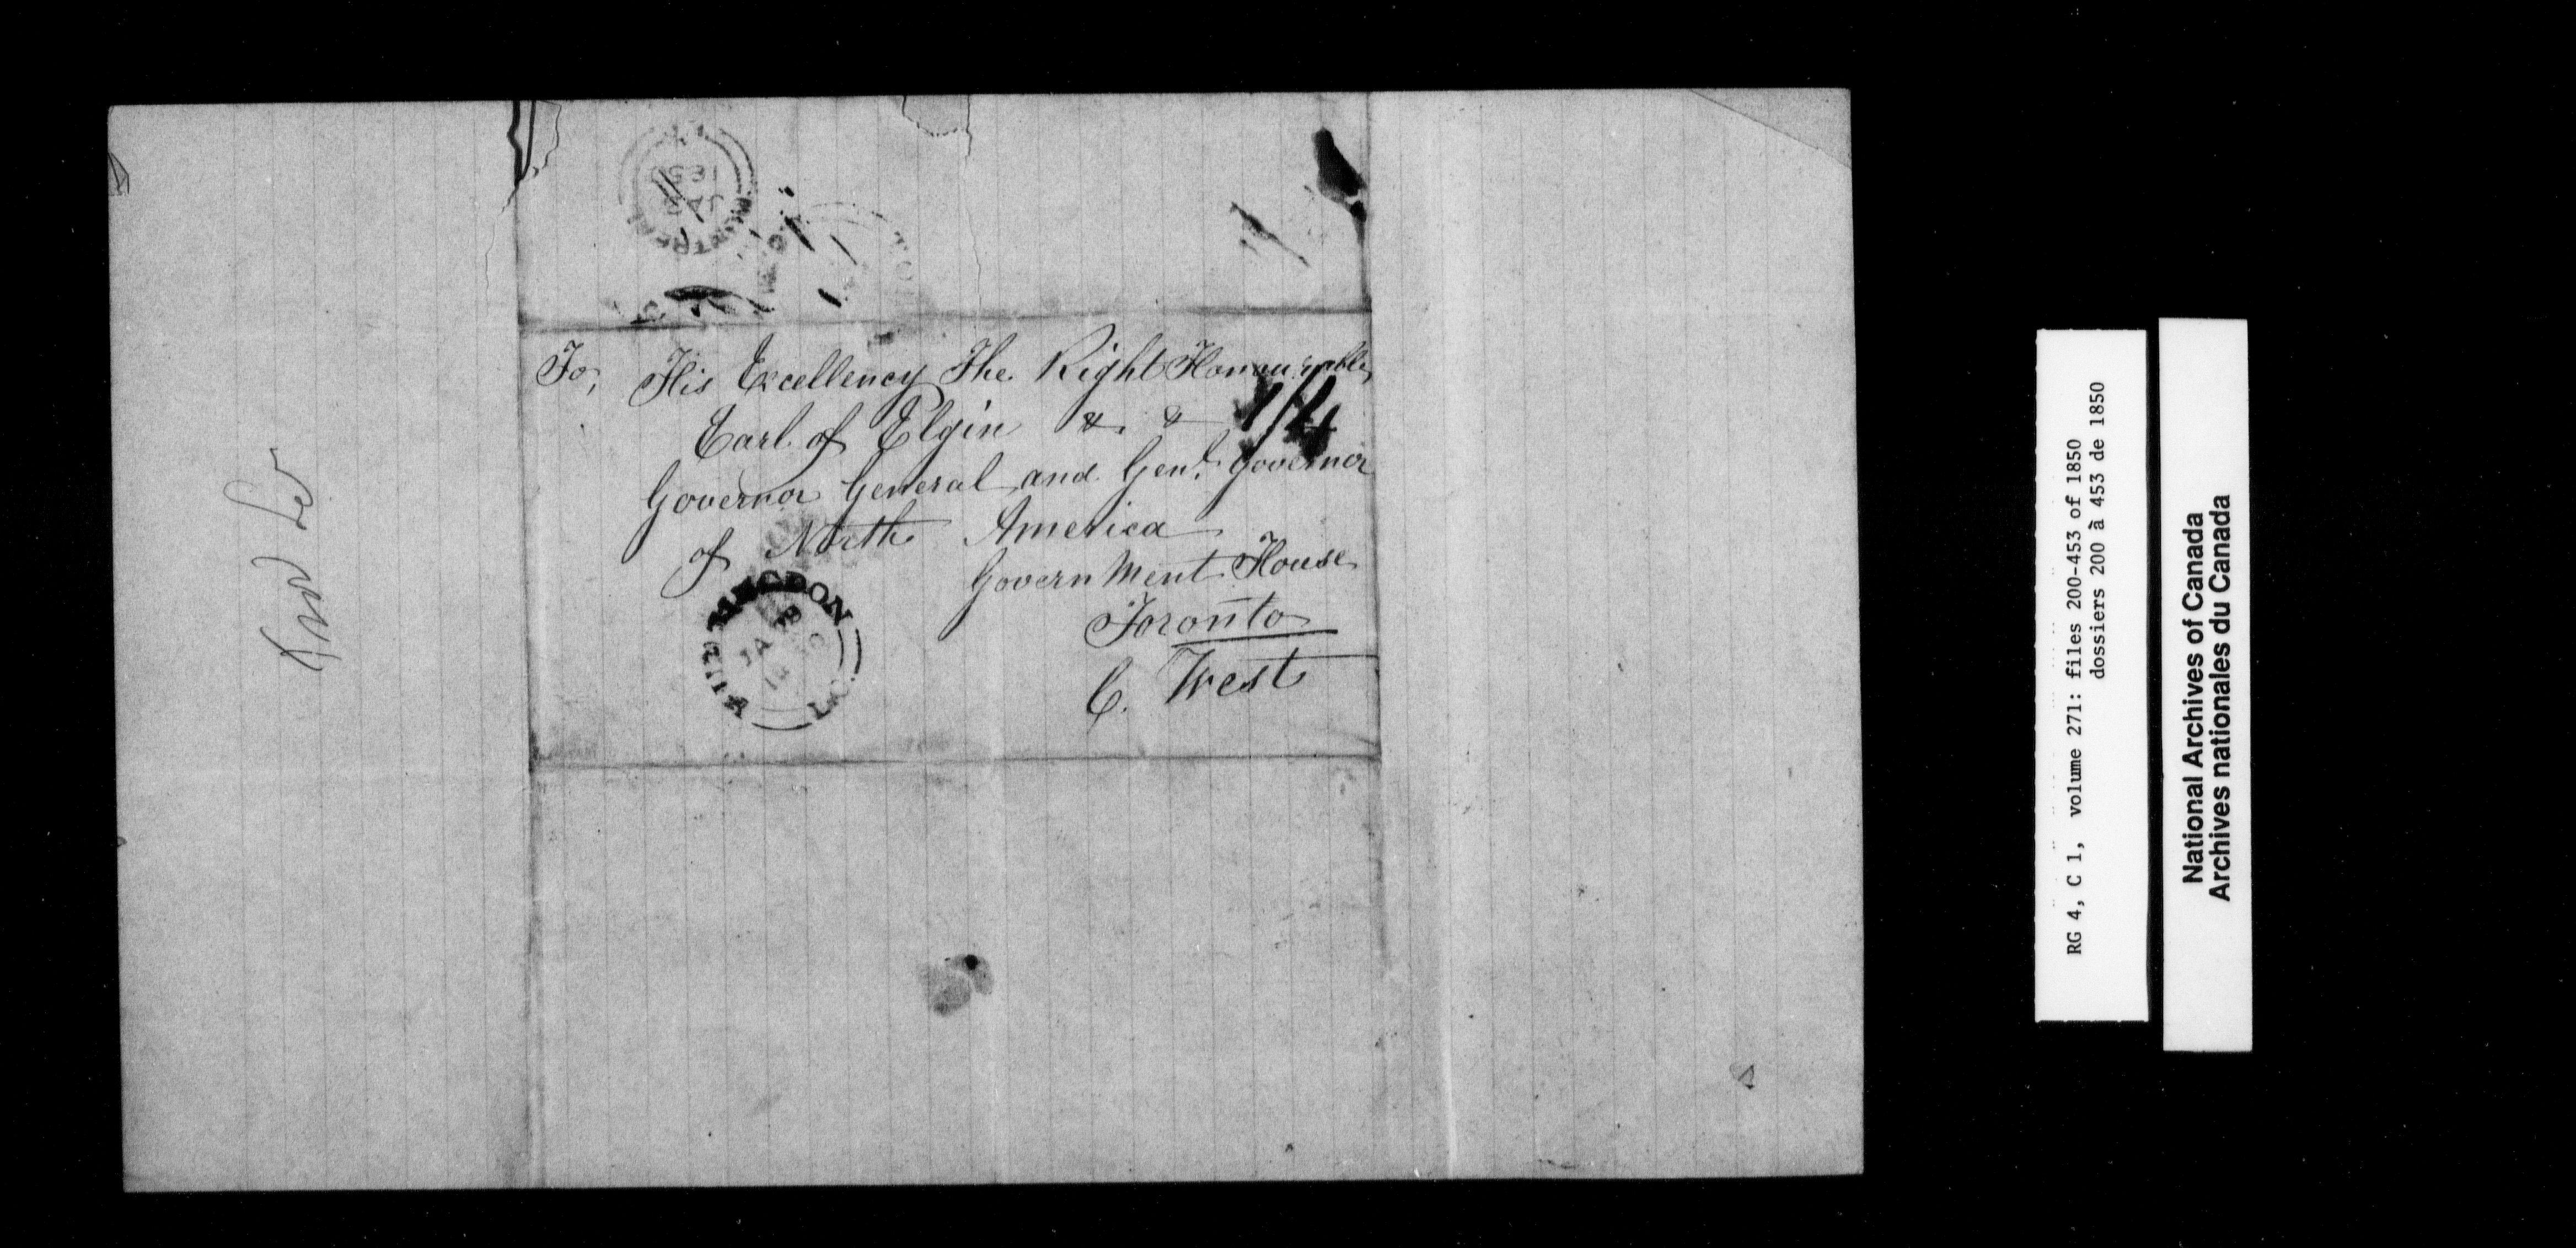 1850
To, His Excellency The Right Honourable
Earl of Elgin &. &
1/4
Governor General and Genl. Governor
of North America
Government House
Toronto
C. West
HUNTINGDON
JA
L.C.
RG 4, C 1, volume 271: files 200-453 of 1850
dossiers 200 à 453 de 1850
National Archives of Canada
Archives nationales du Canada